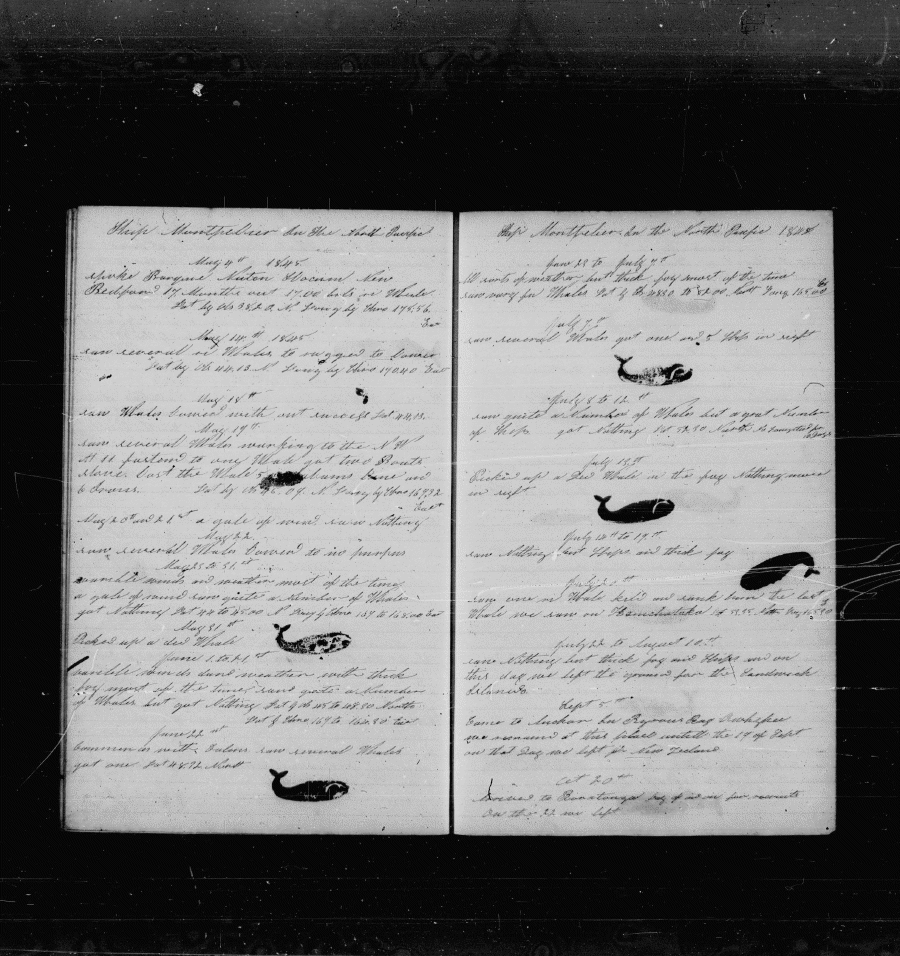 Ship Montpelier In the North Pacific
May 4th 1848
spoke Barque Nuton Slocum New
Bedford 17 Months out 17.00 bbls or Whale
Lat by Ob 38.20. N. Long by Chro 175.56.
East
May 14th 1848
saw several Whales to rugged to Lower
Lat by Ob 44.13. N Long by Chro 170.40 East
May 18th
saw Whales Lowered with out success Lat 44.12
May 19th
saw several Whales working to the N W
At 11 fastend to one Whale got two Boats
stove Lost the Whale
Lat by N Long by Chro 169.32
East
May 20th and 21st a gale of wind saw Nothing
May 22
saw several Whales Lowered to no purpus
May 25 to 31st
winds and weather most of the time
a gale of wind saw quite a Number of Whales
got Nothing Lat 44 to 45.00 N Long by Chro 167 to 168.00 East
May 31st
Picked up a ded Whale
June 1 to 21st
winds and weather with thick
fog most of the time saw quite a Number
of Whales but got Nothing Lat by Ob 45 to 48.30 North
Long by Chro 169 to 164.30 East
June 22nd
Commences with Calms saw several Whales
got one Lat 48.32 North
Ship Montpelier In the North Pacific 1848
June 23 to July 7th
All sorts of weather but thick fog most of the time
saw very few Whales Lat by Ob 48.30 to 52.00 North Long 165.00
July 7th
saw several Whales got one and 5 Ships in sight
July 8 to 12th
saw quite a Number of Whales but a great Number
of Ships got Nothing Lat 52.30 North
July 13th
Picked up a Ded Whale in the fog Nothing more
in sight
July 14th to 19th
saw Nothing but Ships and thick fog
July
saw one Whale and sank him the last
Whale we saw on Kamschatka
July 22 to August 10th
saw Nothing but thick fog and Ships and on
this day we left the ground for the Sandwich
Islands
Sept 5th
Came to Anchor in
we remained at this untill the 19 of Sept
on that Day we left for New Zeland
Oct 20th
Arrived to Rarotonga
On the 22 we left